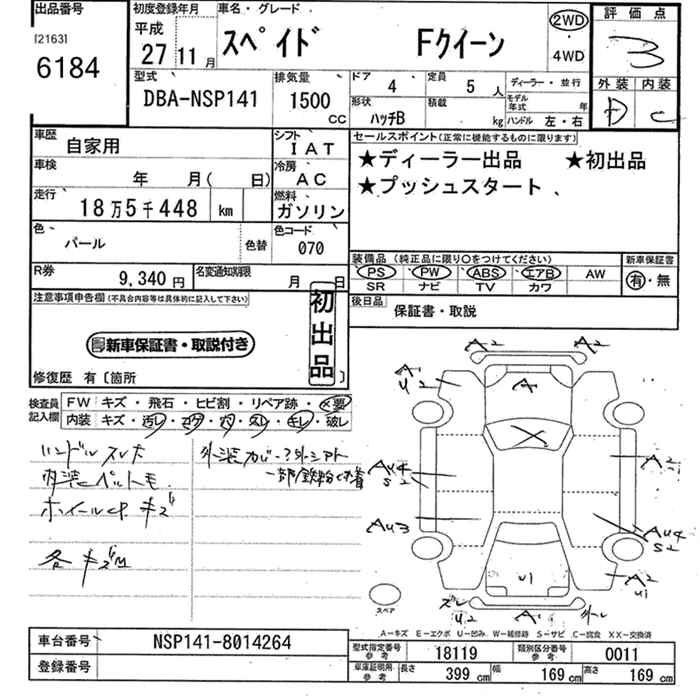 出品番号
[2163]
6184
初度登録年月
平成
27 11 月
車名・グレード
スペイド Fクイーン
2WD
4WD
評価点
3
外装 内装
D C
型式
DBA-NSP141
排気量
1500
CC
ドア 4
定員 5 人
ディーラー・並行
形状 ハッチB
積載 kg
モデル年式 年
ハンドル 左・右
車歴 自家用
シフト IAT
車検 年 月( 日)
冷房 AC
走行 18万5千448 km
燃料 ガソリン
色 パール
色替
色コード 070
R券 9,340 円
名変通知期限 月 日
セールスポイント(正常に機能するものに限ります)
★ディーラー出品 ★初出品
★プッシュスタート
装備品(純正品に限り○をつけてください)
新車保証書
PS PW ABS エアB AW
有・無
SR ナビ TV カワ
後日品 保証書・取説
注意事項申告欄(不具合内容等は具体的に記入して下さい)
新車保証書・取説付き
初出品
修復歴 有〔箇所 〕
検査員記入欄
FW キズ・飛石・ヒビ割・リペア跡・×要
内装 キズ・汚レ・コゲ・穴・スレ・キレ・破レ
ハンドルスレ
ホイールCP キズ
各キズ
A2 A2
A1
U2
A
A2
AU4
S2
AU3
AU4
S2
A2
U1
U1
ズレ
U2
A1
スペア
A-キズ E-エクボ U-凹み W-補修跡 S-サビ C-腐食 XX-交換済
車台番号 NSP141-8014264
登録番号
型式指定番号 参考 18119
類別区分番号 参考 0011
車庫証明用 参考
長さ 399 cm 幅 169 cm 高さ 169 cm